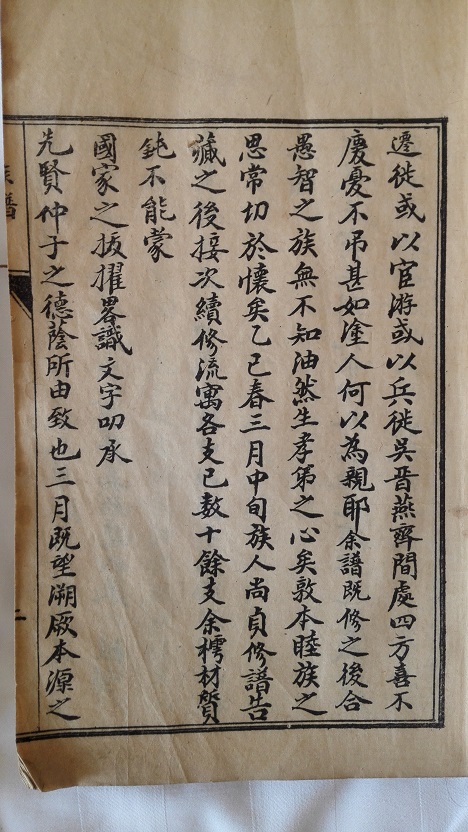 遷徙或以宦游或以兵徙吳晋燕齊間處四方喜不
慶憂不吊甚如塗人何以為親耶余譜既修之後合
愚智之族無不知油然生孝弟之心矣敦本睦族之
思常切於懷矣乙巳春三月中旬族人尚貞修譜告
藏之後接次續修流寓各支已数十餘支余樗材質
鈍不能蒙
國家之拔擢畧識文字叨承
先賢仲子之德蔭所由致也三月既望溯厥本源之
族譜
二